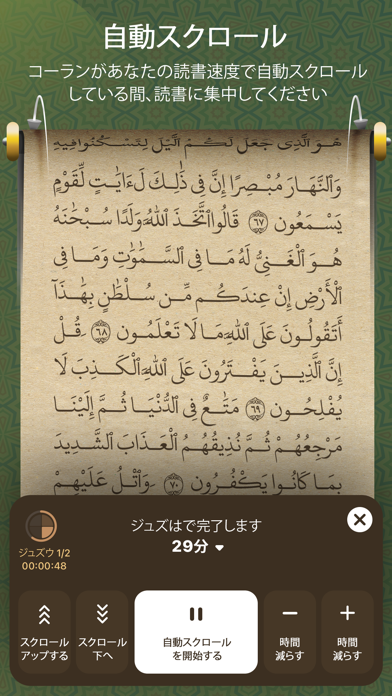 自動スクロール
コーランがあなたの読書速度で自動スクロール
している間、読書に集中してください
هُوَ ٱلَّذِى جَعَلَ لَكُمُ ٱلَّيْلَ لِتَسْكُنُوا۟ فِيهِ
وَٱلنَّهَارَ مُبْصِرًا إِنَّ فِى ذَٰلِكَ لَءَايَـٰتٍ لِّقَوْمٍ
يَسْمَعُونَ ٦٧ قَالُوا۟ ٱتَّخَذَ ٱللَّهُ وَلَدًا سُبْحَـٰنَهُۥ
هُوَ ٱلْغَنِىُّ لَهُۥ مَا فِى ٱلسَّمَـٰوَٰتِ وَمَا فِى
ٱلْأَرْضِ إِنْ عِندَكُم مِّن سُلْطَـٰنٍۭ بِهَـٰذَآ
أَتَقُولُونَ عَلَى ٱللَّهِ مَا لَا تَعْلَمُونَ ٦٨ قُلْ
إِنَّ ٱلَّذِينَ يَفْتَرُونَ عَلَى ٱللَّهِ ٱلْكَذِبَ لَا
يُفْلِحُونَ ٦٩ مَتَـٰعٌ فِى ٱلدُّنْيَا ثُمَّ إِلَيْنَا
مَرْجِعُهُمْ ثُمَّ نُذِيقُهُمُ ٱلْعَذَابَ ٱلشَّدِيدَ
بِمَا كَانُوا۟ يَكْفُرُونَ ٧٠ وَٱتْلُ عَلَيْهِمْ
ジュズはで完了します
29分
ジュズウ 1/2
00:00:48
スクロール
アップする
スクロール
下へ
自動スクロール
を開始する
時間
減らす
時間
減らす